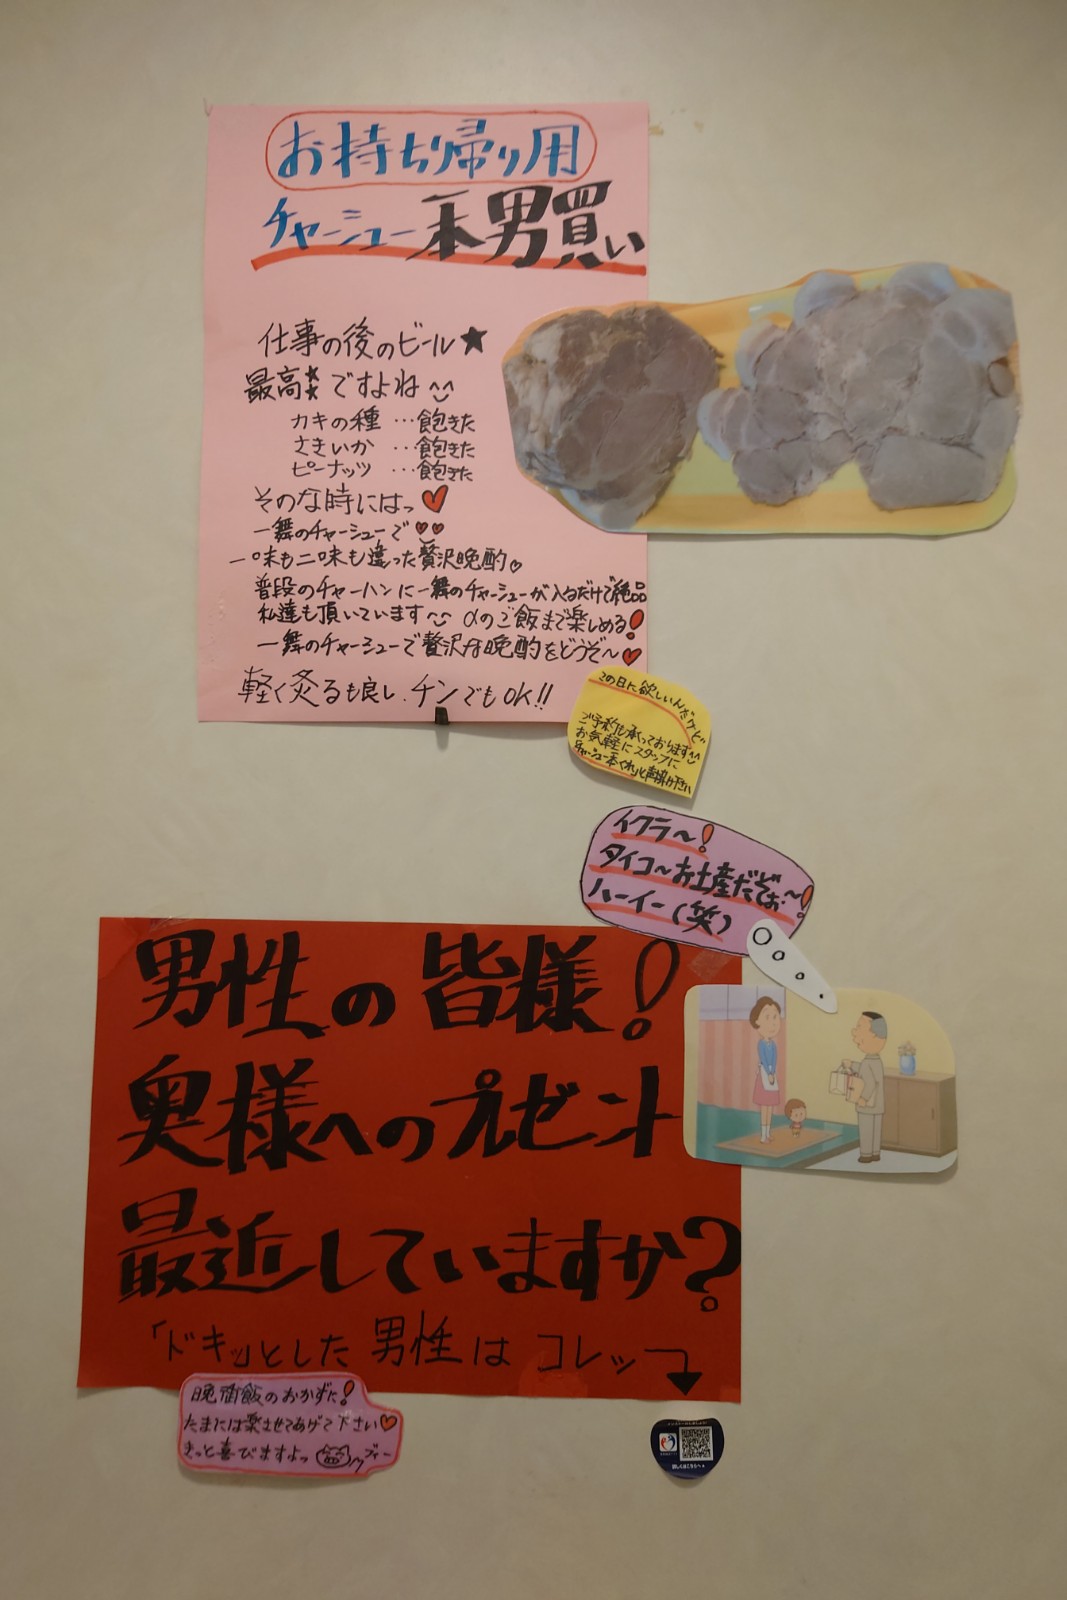 お持ち帰り用
チャーシュー一本男買い
仕事の後のビール★
最高★★ですよね^^
カキの種 …飽きた
さきいか …飽きた
ピーナッツ …飽きた
そのな時にはっ♥
一舞のチャーシューで♥♥
一味も二味も違った贅沢晩酌♡
普段のチャーハンに一舞のチャーシューが入るだけで絶品
私達も頂いています^^ αのご飯まで楽しめる!
一舞のチャーシューで贅沢な晩酌をどうぞ〜♥
軽く炙るも良し、チンでもOK!!
この日に欲しいんだケド
ご予約も承っております^^
お気軽にスタッフに
チャーシュー一本くれ」と声掛け下さい
イクラ〜!
タイコ〜お土産だぞぉ〜!
ハーイー(笑)
男性の皆様!
奥様へのプレゼント
最近していますか?
「ドキッ」とした男性はコレッ
晩御飯のおかずに!
たまには楽させてあげて下さい♡
きっと喜びますよっ ブー
詳しくはこちらへ▲